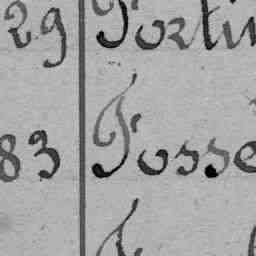 29 Fortin
83 Fosse